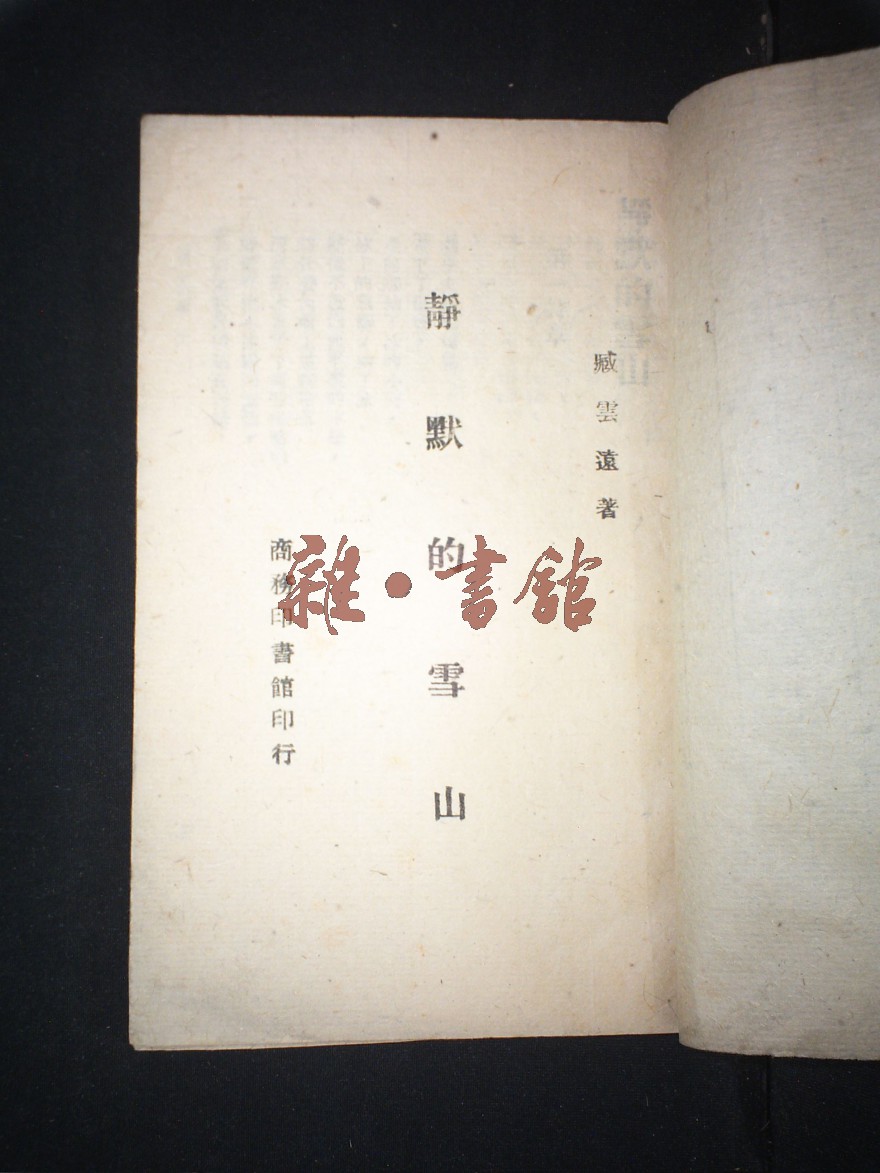 臧雲遠著
靜默的雪山
商務印書館印行
雜·書館